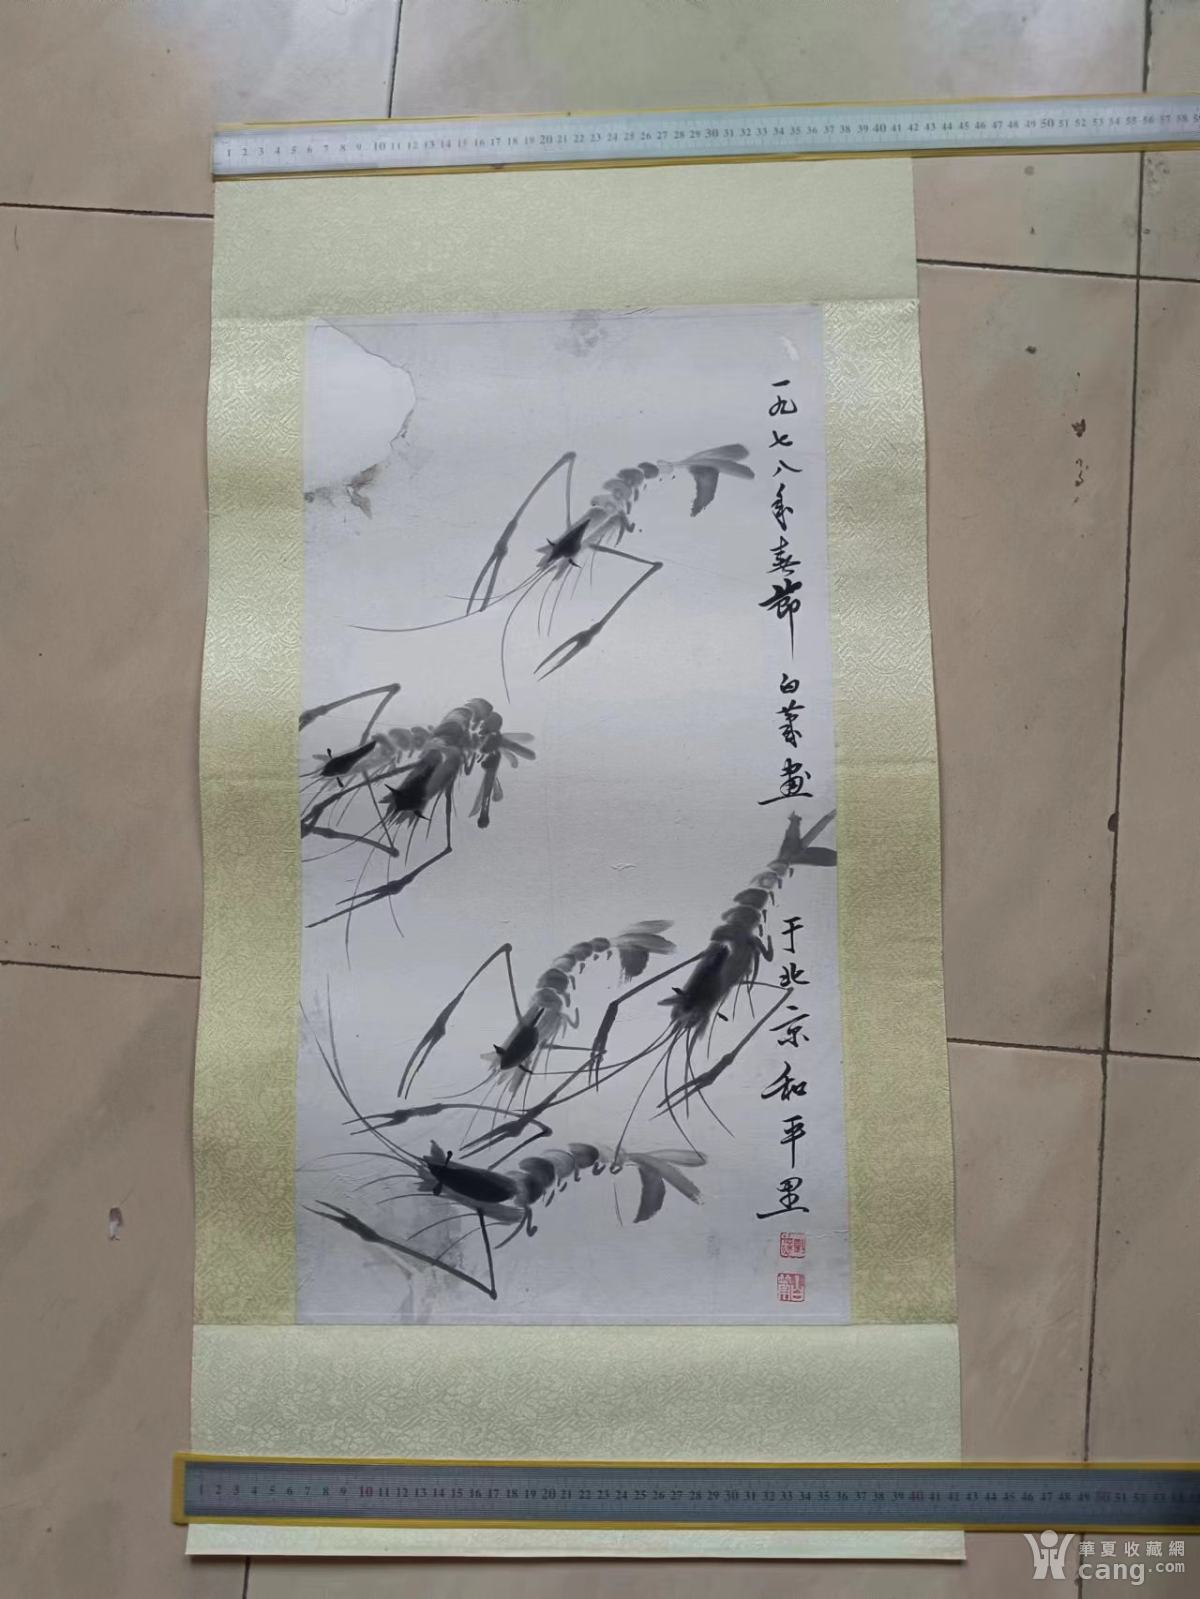 1 2 3 4 5 6 7 8 9 10 11 12 13 14 15 16 17 18 19 20 21 22 23 24 25 26 27 28 29 30 31 32 33 34 35 36 37 38 39 40 41 42 43 44 45 46 47 48 49 50 51 52 53 54 55 56 57 58 59
一九七八年春节 白莱画 于北京和平里
1 2 3 4 5 6 7 8 9 10 11 12 13 14 15 16 17 18 19 20 21 22 23 24 25 26 27 28 29 30 31 32 33 34 35 36 37 38 39 40 41 42 43 44 45 46 47 48 49 50 51 52 53 54
華夏收藏網
cang.com